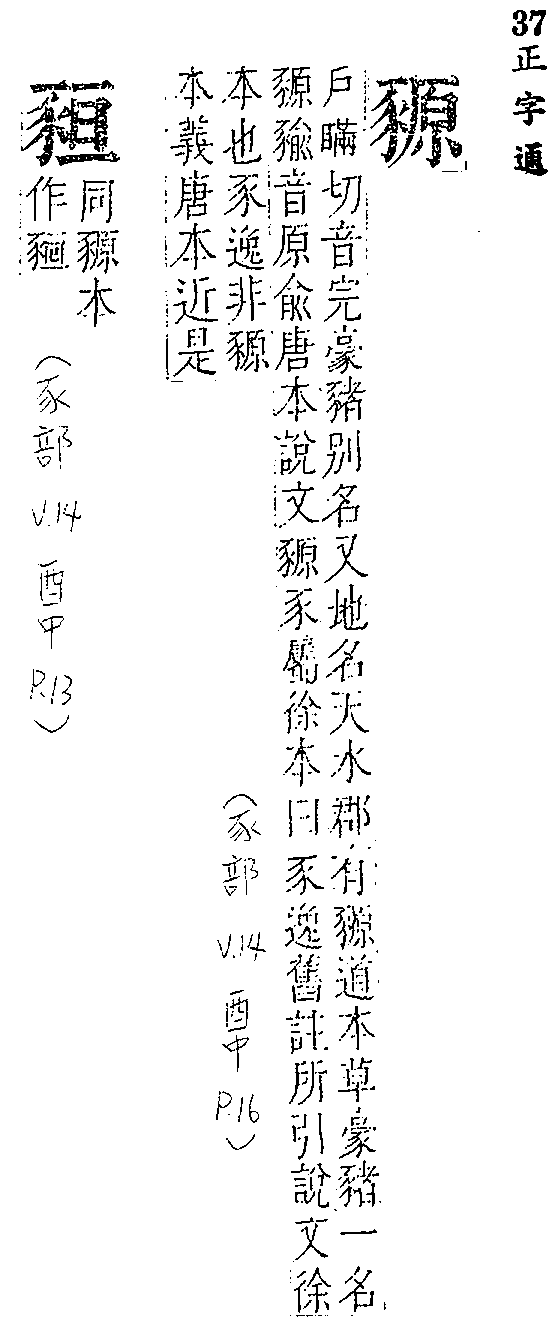 37正字通
豲
戶瞞切音完豪豬別名又地名天水郡有豲道本草豪豬一名
豲貐音原俞唐本說文豲豕屬徐本曰豕逸舊註所引說文徐
本也豕逸非豲
本義唐本近是
（豕部 V.14 酉中 P.16）
䝠
同豲本
作
（豕部 V.14 酉中 P.13）